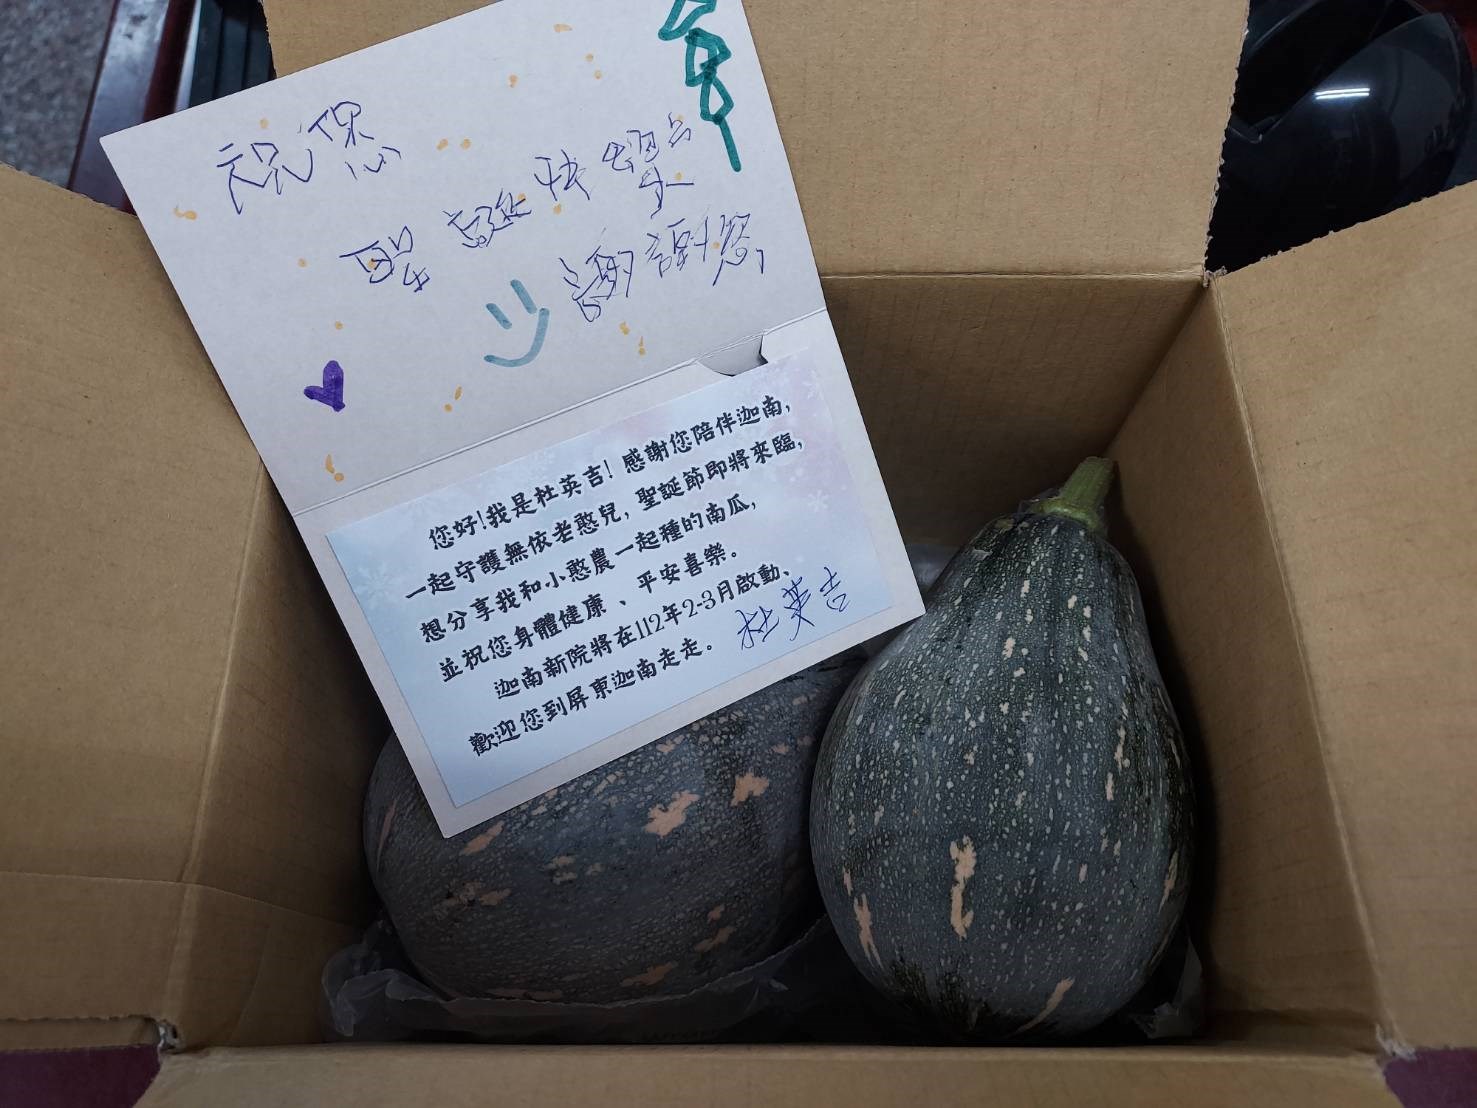 祝您
聖誕快樂
謝謝您
您好!我是杜英吉!感謝您陪伴迦南,
一起守護無依老憨兒,聖誕節即將來臨,
想分享我和小憨農一起種的南瓜,
並祝您身體健康、平安喜樂。
迦南新院將在112年2-3月啟動、
歡迎您到屏東迦南走走。
杜英吉